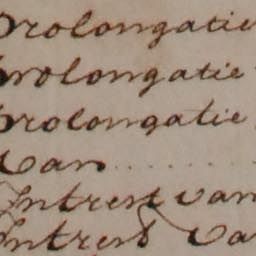 Prolongatie
prolongatie
prolongatie
Van
Intrest van
Intrest Va